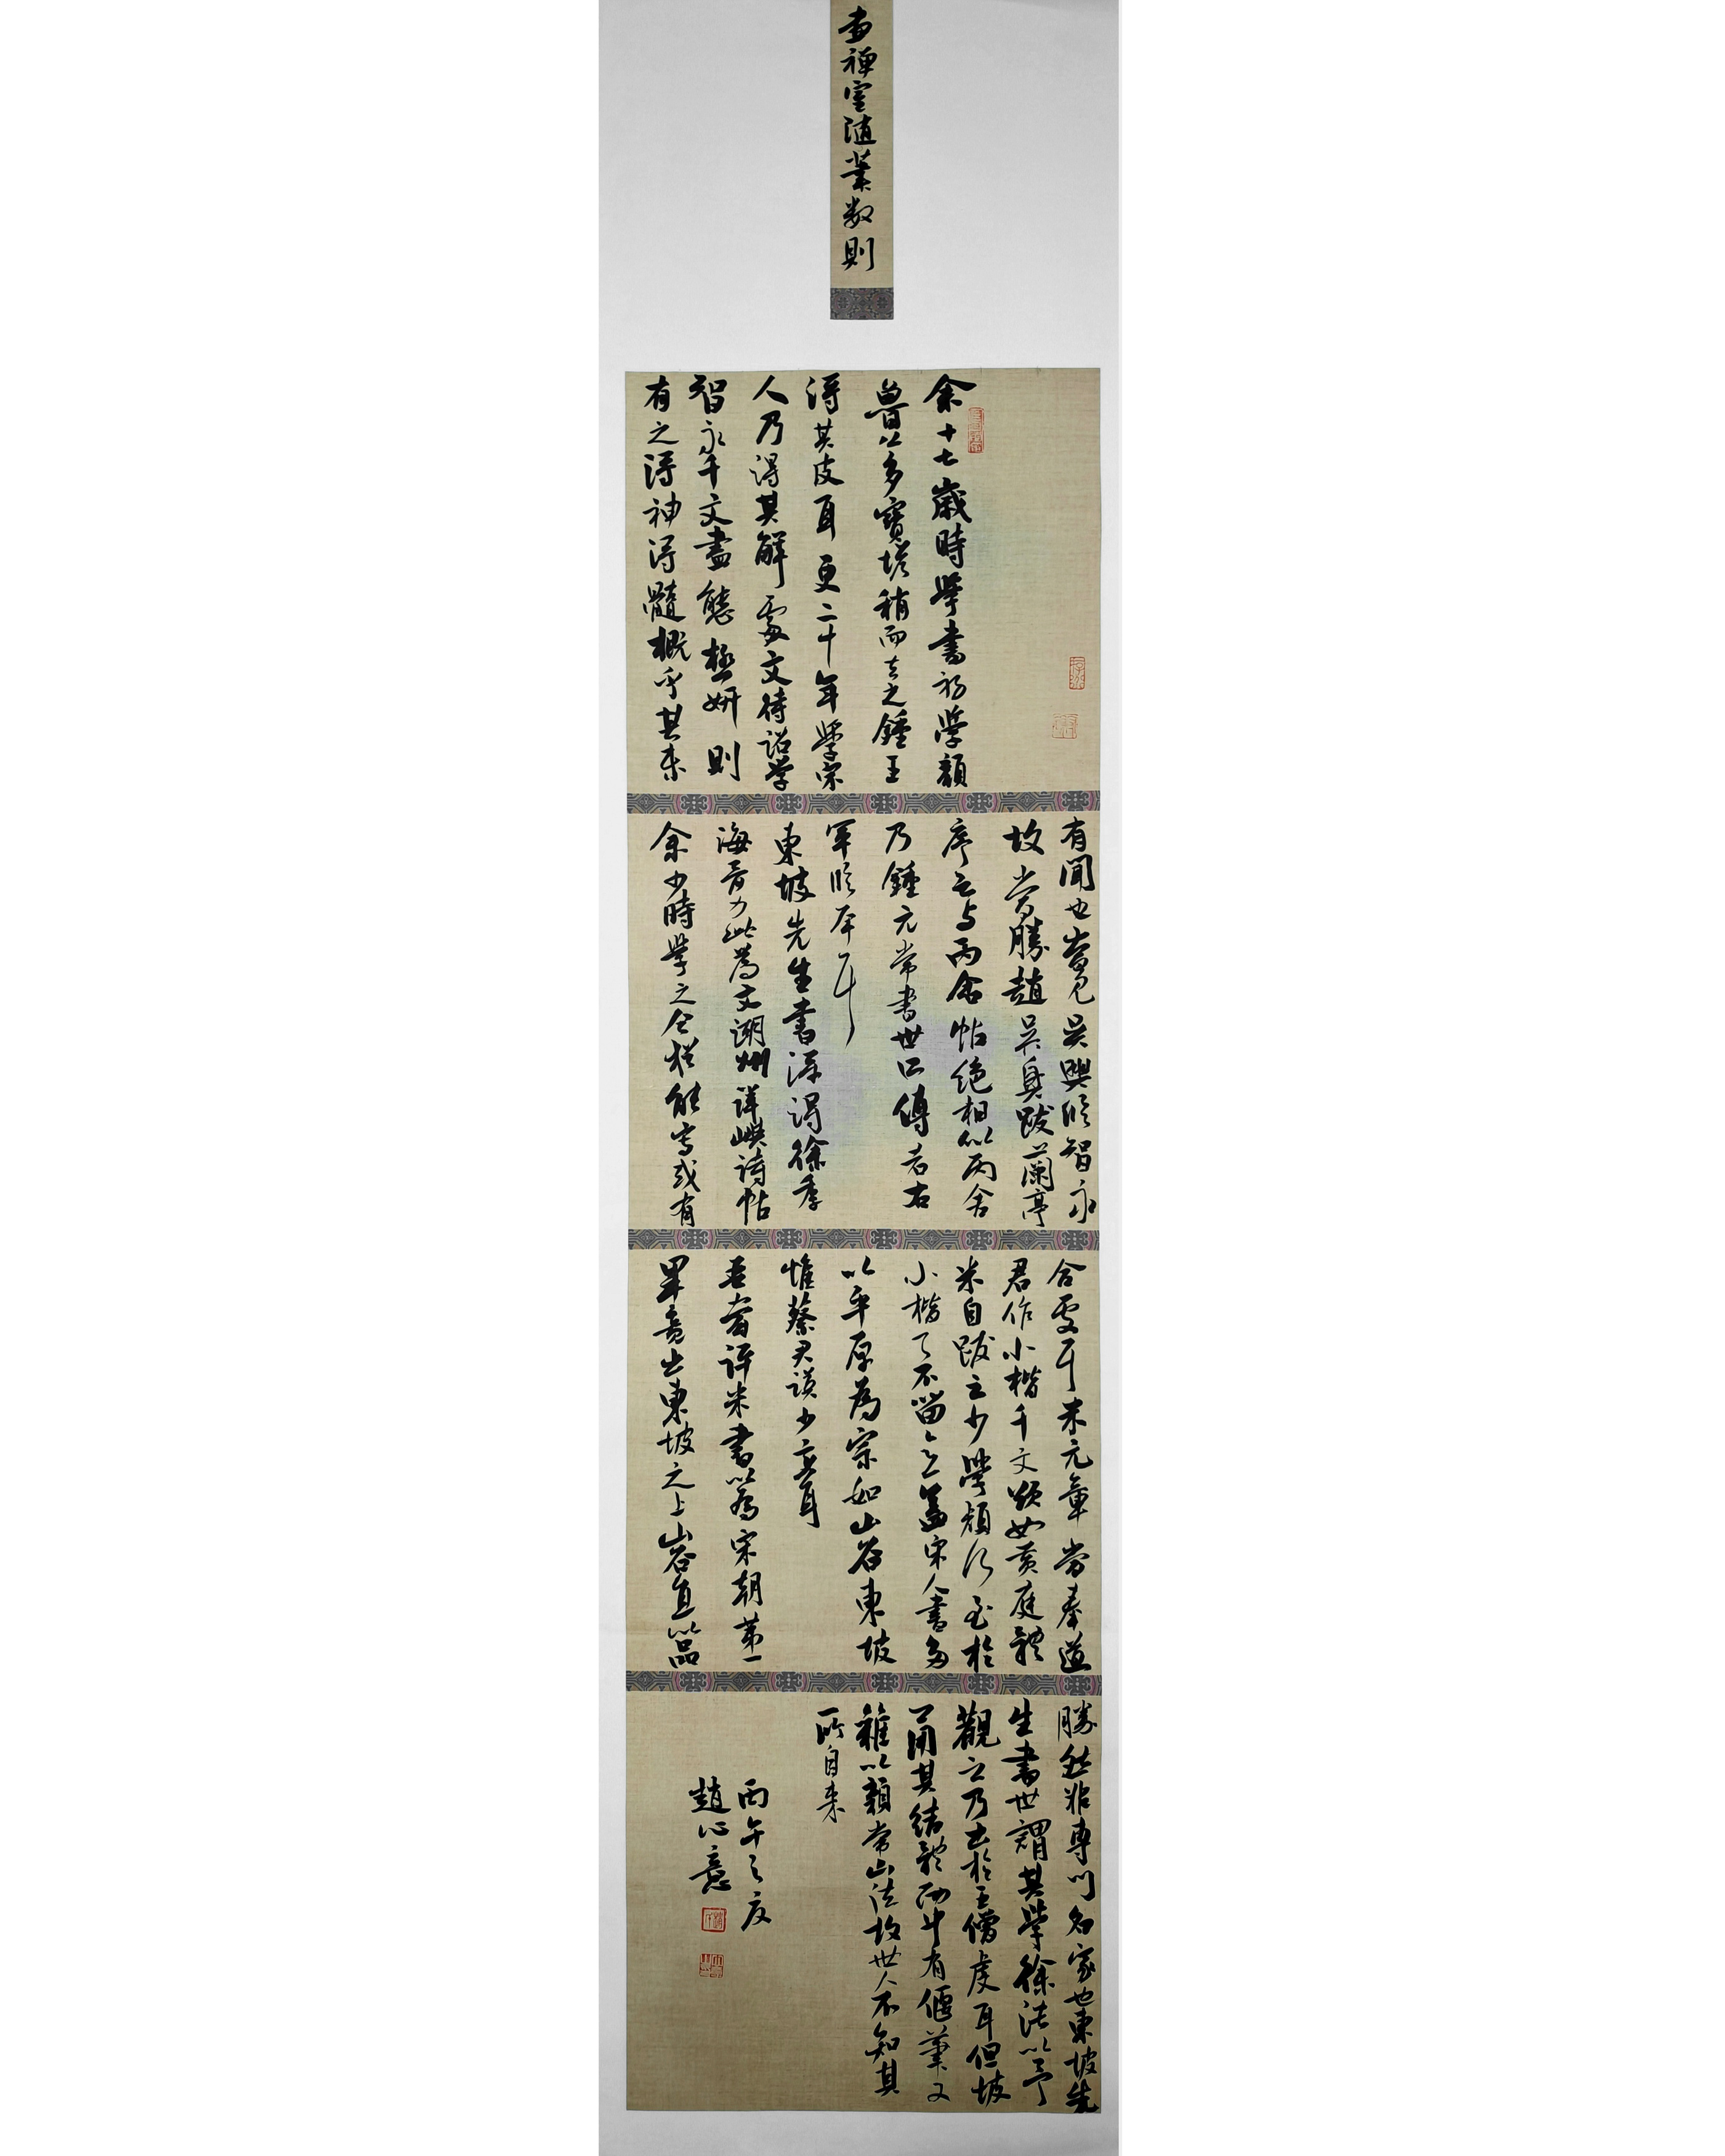 画禅室随筆数則
余十七歲時學書初學顏
魯公多寶塔稍而去之鍾王
得其皮耳更二十年學宋
人乃得其解處文待詔學
智永千文盡態極妍則
有之得神得髓概乎其未
有聞也嘗見吳興臨智永
故當勝趙吳興跋蘭亭
序云与丙舍帖絕相似丙舍
乃鍾元常書世所傳者右
軍臨本耳
東坡先生書深得徐季
海骨力此為文湖州洋嶼詩帖
余少時學之今猶能寫或有
合處耳米元章嘗奉道
君作小楷千文欲如黃庭體
米自跋云少學顏行至於
小楷了不留意蓋宋人書多
以平原為宗如山谷東坡
惟蔡君謨少變耳
吾嘗評米書以為宋朝第一
畢竟出東坡之上山谷直以品
勝然非專門名家也東坡先
生書世謂其學徐浩以予
觀之乃出於王僧虔耳但坡
用其結體而中有偃筆又
雜以顏常山法故世人不知其
所自来
丙午之夏
趙心意